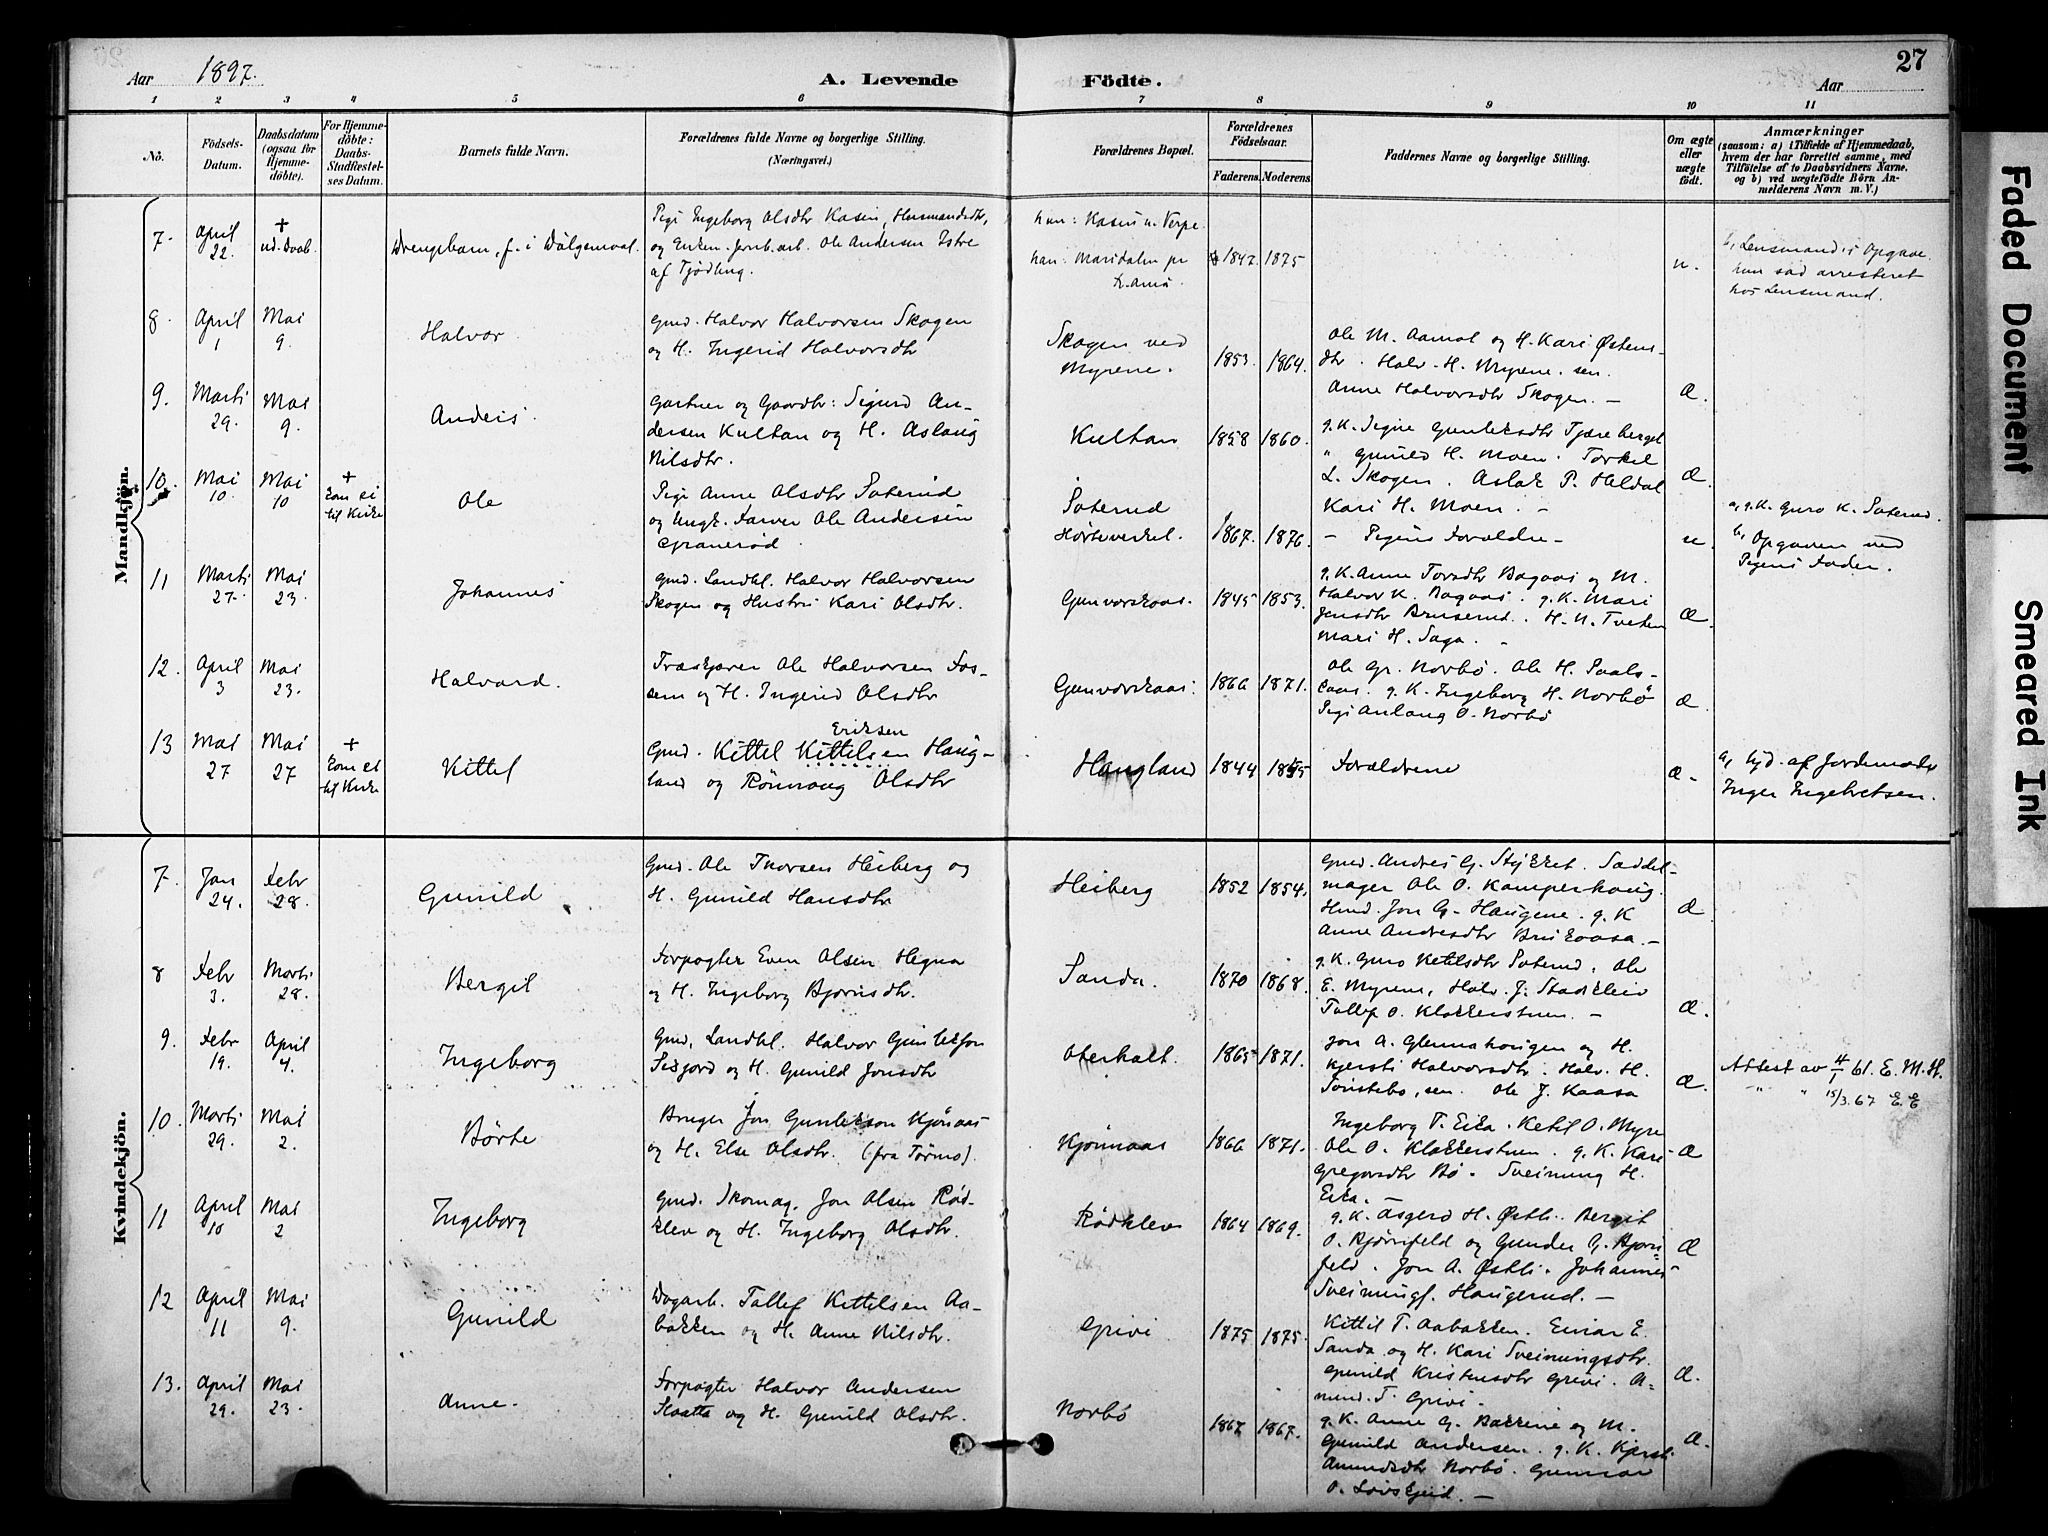 27
Aar 1897.
A. Levende Födte.
Aar
1 2 3 4 5 6 7 8 9 10 11
Nö.
Födsels-Datum.
Daabsdatum (ogsaa for Hjemmedöbte).
For Hjemmedöbte: Daabs-Stadfæstelses Datum.
Barnets fulde Navn.
Forældrenes fulde Navne og borgerlige Stilling.
(Næringsvei.)
Forældrenes Bopæl.
Forældrenes Födselsaar.
Faderens. Moderens.
Faddernes Navne og borgerlige Stilling.
Om ægte eller uægte födt.
Anmærkninger
(saasom: a) i Tilfælde af Hjemmedaab, hvem der har forrettet samme, med Tilföielse af to Daabsvidners Navne, og b) ved uægtefödte Börn Anmelderens Navn m. V.)
Mandkjön.
7. April 22. + ud. Daab Drengebarn, f. i Dålgemoal.
Pige Ingeborg Olsdtr Kasin, Husmandsdtr,
og Enkem. Jernb. arb. Ole Andersen
af Tjödling.
hun: Kasin u. Verpe.
han: Maridalen pr
1847 1875 u.
b, Lensmand,s Opgave
hun sad arresteret
hos Lensmand.
8. April 1 Mai 9. Halvor
Gmd. Halvor Halvorsen Skogen
og H. Ingerid Halvorsdtr
Skogen ved
Myrene.
1853. 1864.
Ole M. Aamot og H. Kari Østens-
dtr. Halv. H. Myrene. sen.
Anne Halvorsdtr Skogen. – Æ.
9. Marti 29. Mai 9. Anders.
Gartner og Gaardbr: Sigurd An-
dersen Kultan og H. Aslaug
Nilsdtr.
Kultan 1858 1860.
g. K. Signe Gunleksdtr Tjæreberget
" Gunild H. Moen. Torkel
L. Skogen. Aslak P. Heldal Æ.
Kari H. Moen. –
10. Mai 10. Mai 10 + Kom ei til Kirke Ole
Pige Anne Olsdtr Soterud
og Ungk. Farver Ole Andersen
Granerød.
Soterud
Hørteverket. 1867. 1876.
– Pigens Forældre – u.
a, g. K. Guro K. Soterud.
b, Opgaven ved
Pigens Fader.
11 Marti 27. Mai 23. Johannes
Gmd. Landhl. Halvor Halvorsen
Skogen og Hustru Kari Olsdtr.
Gunvorskaas. 1845 1853.
g. K. Anne Torsdtr Bagaas og M.
Halvor K. Bagaas. g. K. Mari
Jensdtr Bruserud. H. N. Tveten Æ.
Mari H. Saga. –
12. April 3 Mai 23. Halvard.
Træskjærer Ole Halvorsen Fos-
sem og H. Ingerid Olsdtr
Gunvorskaas. 1866 1871.
Ole Gr. Norbö. Ole H. Paals-
kaas. g. K. Ingeborg H. Norbö
Pige Anlaug O. Norbö Æ.
13 Mai 27 Mai 27 + Kom ei til Kirke Kittel
Eriksen
Gmd. Kittel Kittelsen Haug-
land og Rönnaug Olsdtr
Haugland 1844 1855 Forældrene Æ.
a, af Jordemoder
Inger Ingebretsen.
Kvindekjön.
7. Jan 24. Febr 28. Gunild
Gmd. Ole Thorsen Heiberg og
H. Gunild Hansdtr
Heiberg 1852 1854.
Gmd. Andres G. Stykket. Saddel-
mager Ole O. Kamperhaug.
Hmd. Jon G. Haugene. g. K Æ.
Anne Andresdtr Brukaasa. –
8 Febr 3. Marti 28. Bergit
Forpagter Even Olsen Hegna
og H. Ingeborg Bjørnsdtr.
Sanda. 1870 1868.
g. K. Guro Ketilsdtr Soterud. Ole
E. Myrene, Halv. J. Stadskleiv
Tallef O. Klokkerstuen. – Æ.
9. Febr 19. April 4. Ingeborg
Gmd, Landhl. Halvor Gunleksen
Seijord og H. Gunild Jonsdtr
Oterholt. 1865 1871.
Jon A. Glennahaugen og H.
Kjersti Halvorsdtr. Halv. H.
Tonstebo, sen. Ole J. Kaasa Æ.
Attest av 4/1 61. E. M. H.
" " 15/3.67 E E
10. Marti 29. Mai 2. Børte
Bruger Jon Gunlekson Kjönaas
og H. Else Olsdtr. (fra Törmo).
Kjönnaas 1866 1871.
Ingeborg T. Eika. Ketil O. Myre
Ole O. Klokkerstuen. g. K. Kari Æ
Gregarsdtr Bö. Sveinung H.
Eika. –
11 April 10 Mai 2 Ingeborg
Gmd. Skomag. Jon Olsen Rød-
klev og H. Ingeborg Olsdtr.
Rødklev 1864 1869.
g. K. Asgerd H. Østli. Bergit
O. Bjørnfeld og Gunder G. Bjørn- Æ
feld. Jon A. Østli. Johannes
Sveinungs. Haugerud. –
12 April 11 Mai 9. Gunild
Dagarb. Tallef Kittelsen Aa-
bakken og H. Anne Nilsdtr.
Grivi. 1875 1875.
Kittil T. Aabakken. Einar E.
Sanda og H. Kari Sveinungsdtr.
Gunild Kristensdtr Grivi. A- Æ.
mund. T. Grivi.
13. April 29. Mai 23. Anne.
Forpagter Halvor Andersen
Slaatta og H. Gunild Olsdtr.
Norbö 1867 1867.
g. K. Anne G. Bakkene og M.
Gunild Andersen. g. K. Kjersti Æ.
Amundsdtr Norbö. Gunnar
O. Løvskeid. –
Faded Document
Smeared Ink